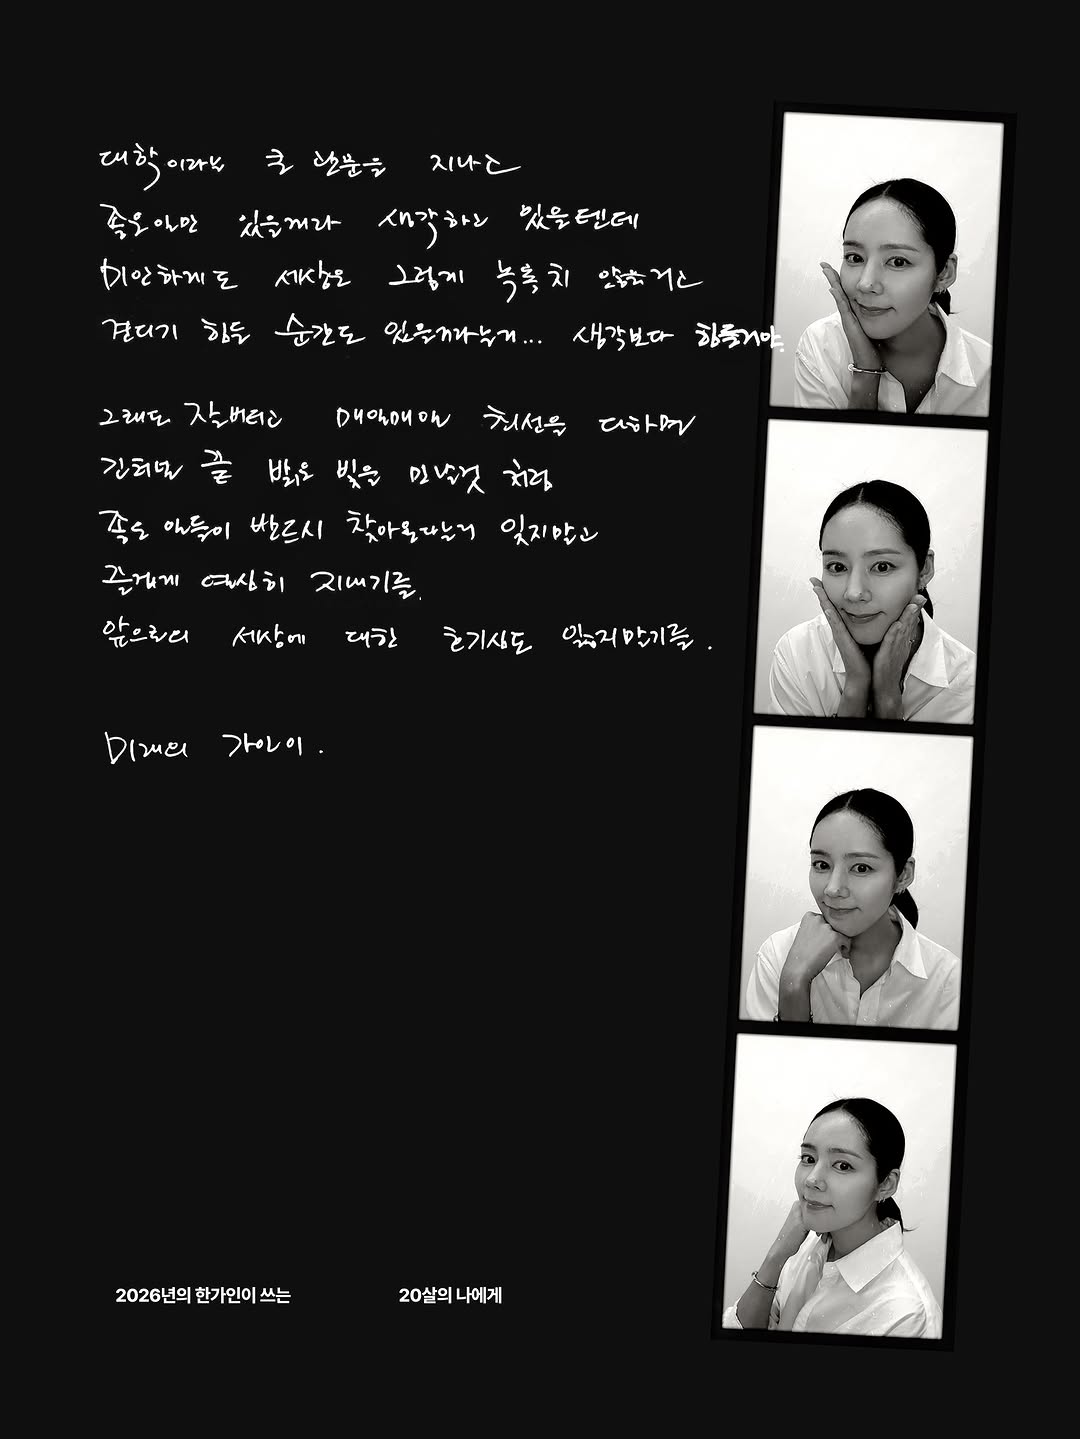 대학이라는 큰 관문을 지나고
좋은일만 있을꺼라 생각하고 있을텐데
미안하게도 세상은 그렇게 녹록치 않을거고
견디기 힘든 순간도 있을꺼라는거... 생각보다 힘들거야.
그래도 잘버티고 매일매일 최선을 다하면
긴터널 끝 밝은 빛을 만날것 처럼
좋은 일들이 반드시 찾아온다는거 잊지말고
즐겁게 열심히 지내기를.
앞으로의 세상에 대한 호기심도 잃지말기를.
미래의 가인이.
2026년의 한가인이 쓰는 20살의 나에게